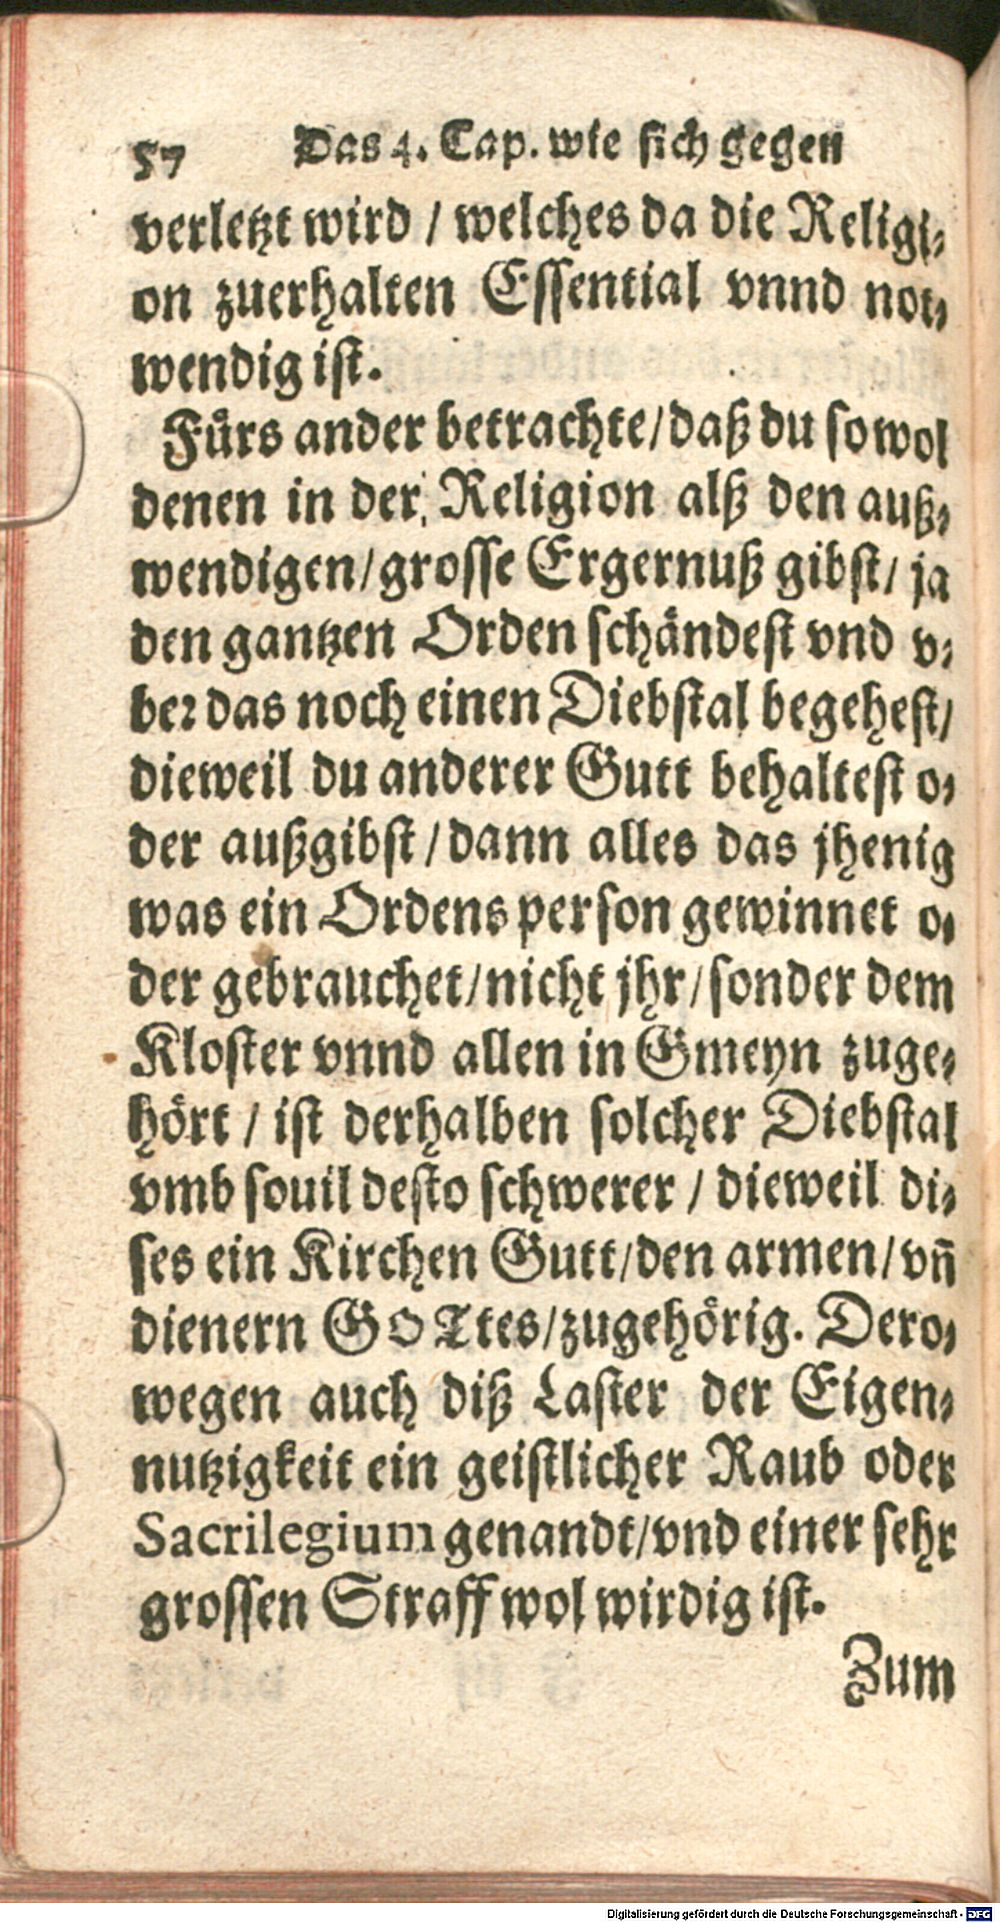 57 Das 4. Cap. wie sich gegen
verletzt wird / welches da die Religi⸗
on zuerhalten Essential vnnd not⸗
wendig ist.
Fürs ander betrachte/daß du so wol
denen in der Religion alß den auß⸗
wendigen/grosse Ergernuß gibst/ ja
den gantzen Orden schändest vnd v⸗
ber das noch einen Diebstal begehest/
dieweil du anderer Gutt behaltest o⸗
der außgibst/dann alles das jhenig
was ein Ordens person gewinnet o⸗
der gebrauchet/nicht jhr/sonder dem
Kloster vnnd allen in Gmeyn zuge⸗
hört / ist derhalben solcher Diebstal
vmb souil desto schwerer / dieweil di⸗
ses ein Kirchen Gutt/den armen/vñ
dienern GOTtes/zugehörig. Dero⸗
wegen auch diß Laster der Eigen⸗
nutzigkeit ein geistlicher Raub oder
Sacrilegium genandt/vnd einer sehr
grossen Straff wol wirdig ist.
Zum
Digitalisierung gefördert durch die Deutsche Forschungsgemeinschaft - DFG